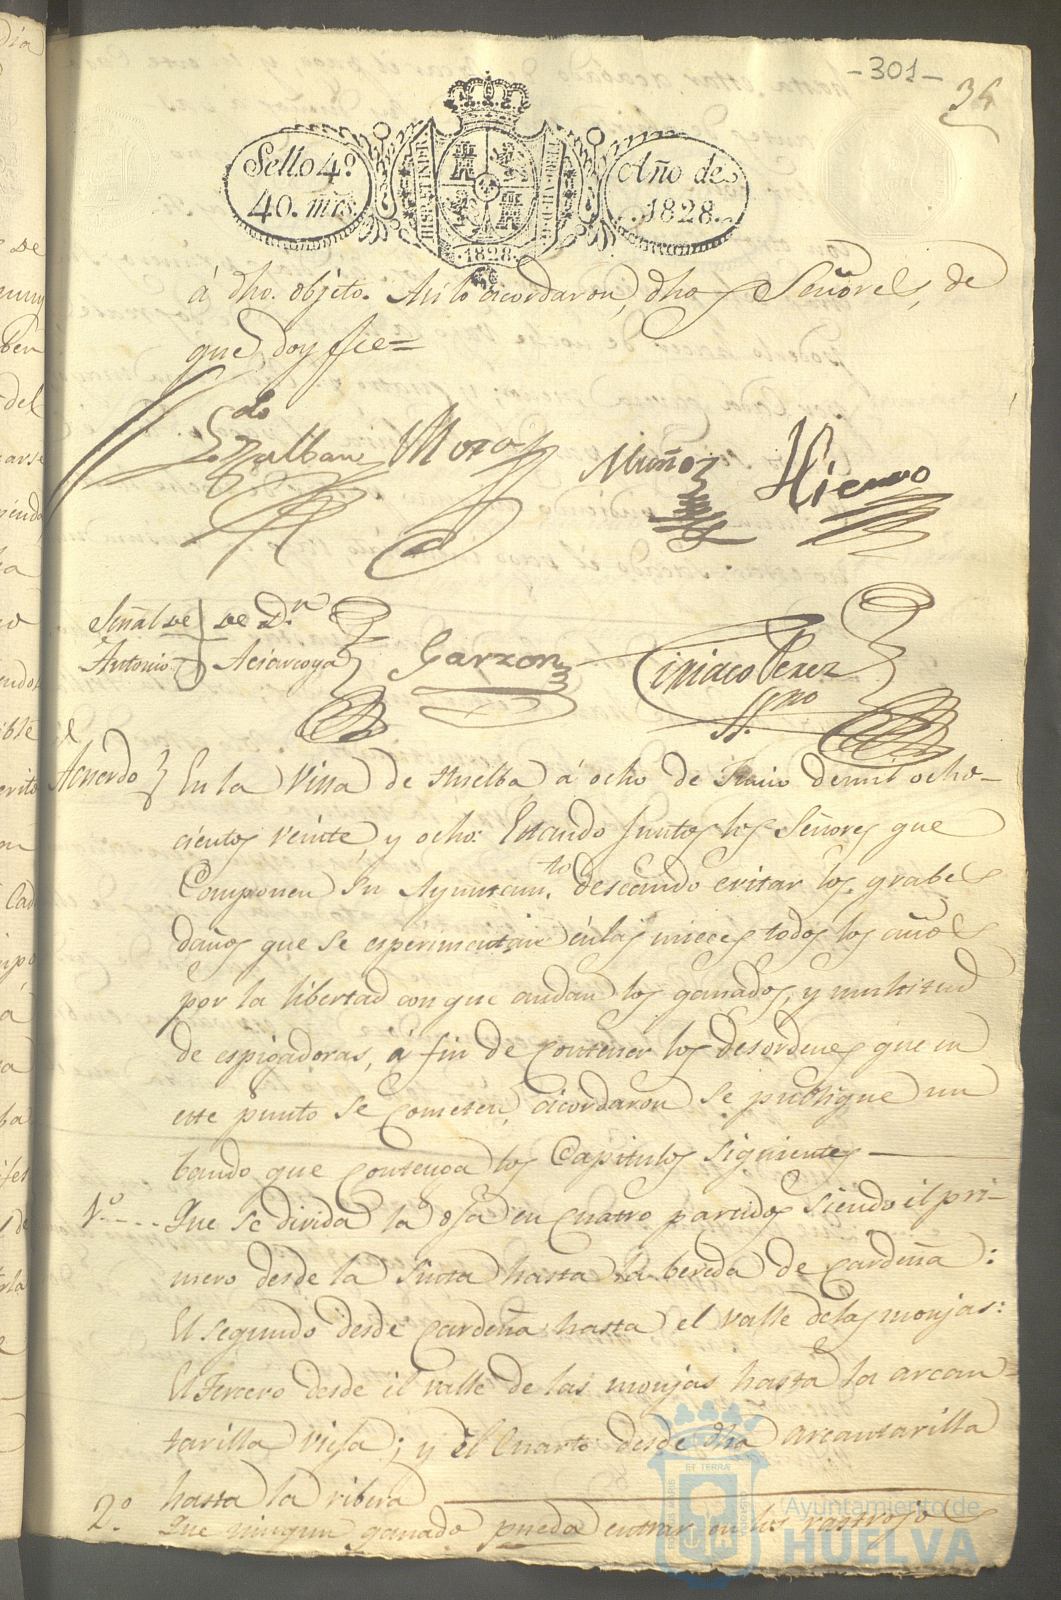 -301-
34
Sello 4º.
40. mrs.
HISPAN. ET IND. R.
1828.
Año de
1828.
á dho. objeto. Asi lo acordaron dhos Señores, de
que doy fee=
Ldo
Zalban Moro Muñoz Hierro
Señal de de Dn
Antonio Garzon Ciriaco Perez
Ssno
Acuerdo En la Villa de Huelba á ocho de Junio de mil ocho-
cientos veinte y ocho: Estando juntos los Señores que
Componen su Ayuntam.to deseando evitar los grabes
daños que se esperimentan én las mieces todos los años
por la libertad con que andan los ganados, y multitud
de espigadoras, á fin de contener los desordenes que en
este punto se cometen, acordaron se publique un
bando que contenga los Capitulos siguientes
1º.... Que se divida la oja en cuatro partidos siendo el pri-
mero desde la hasta la bereda de Cardeña:
El segundo desde Cardeña hasta el valle de las monjas:
El Tercero desde el valle de las monjas hasta la arcan-
tarilla vieja; y el Cuarto desde dha arcantarilla
hasta la ribera
2º. Que ningun ganado pueda entrar en los rastrojos
ET TERRÆ
Ayuntamiento de
HUELVA